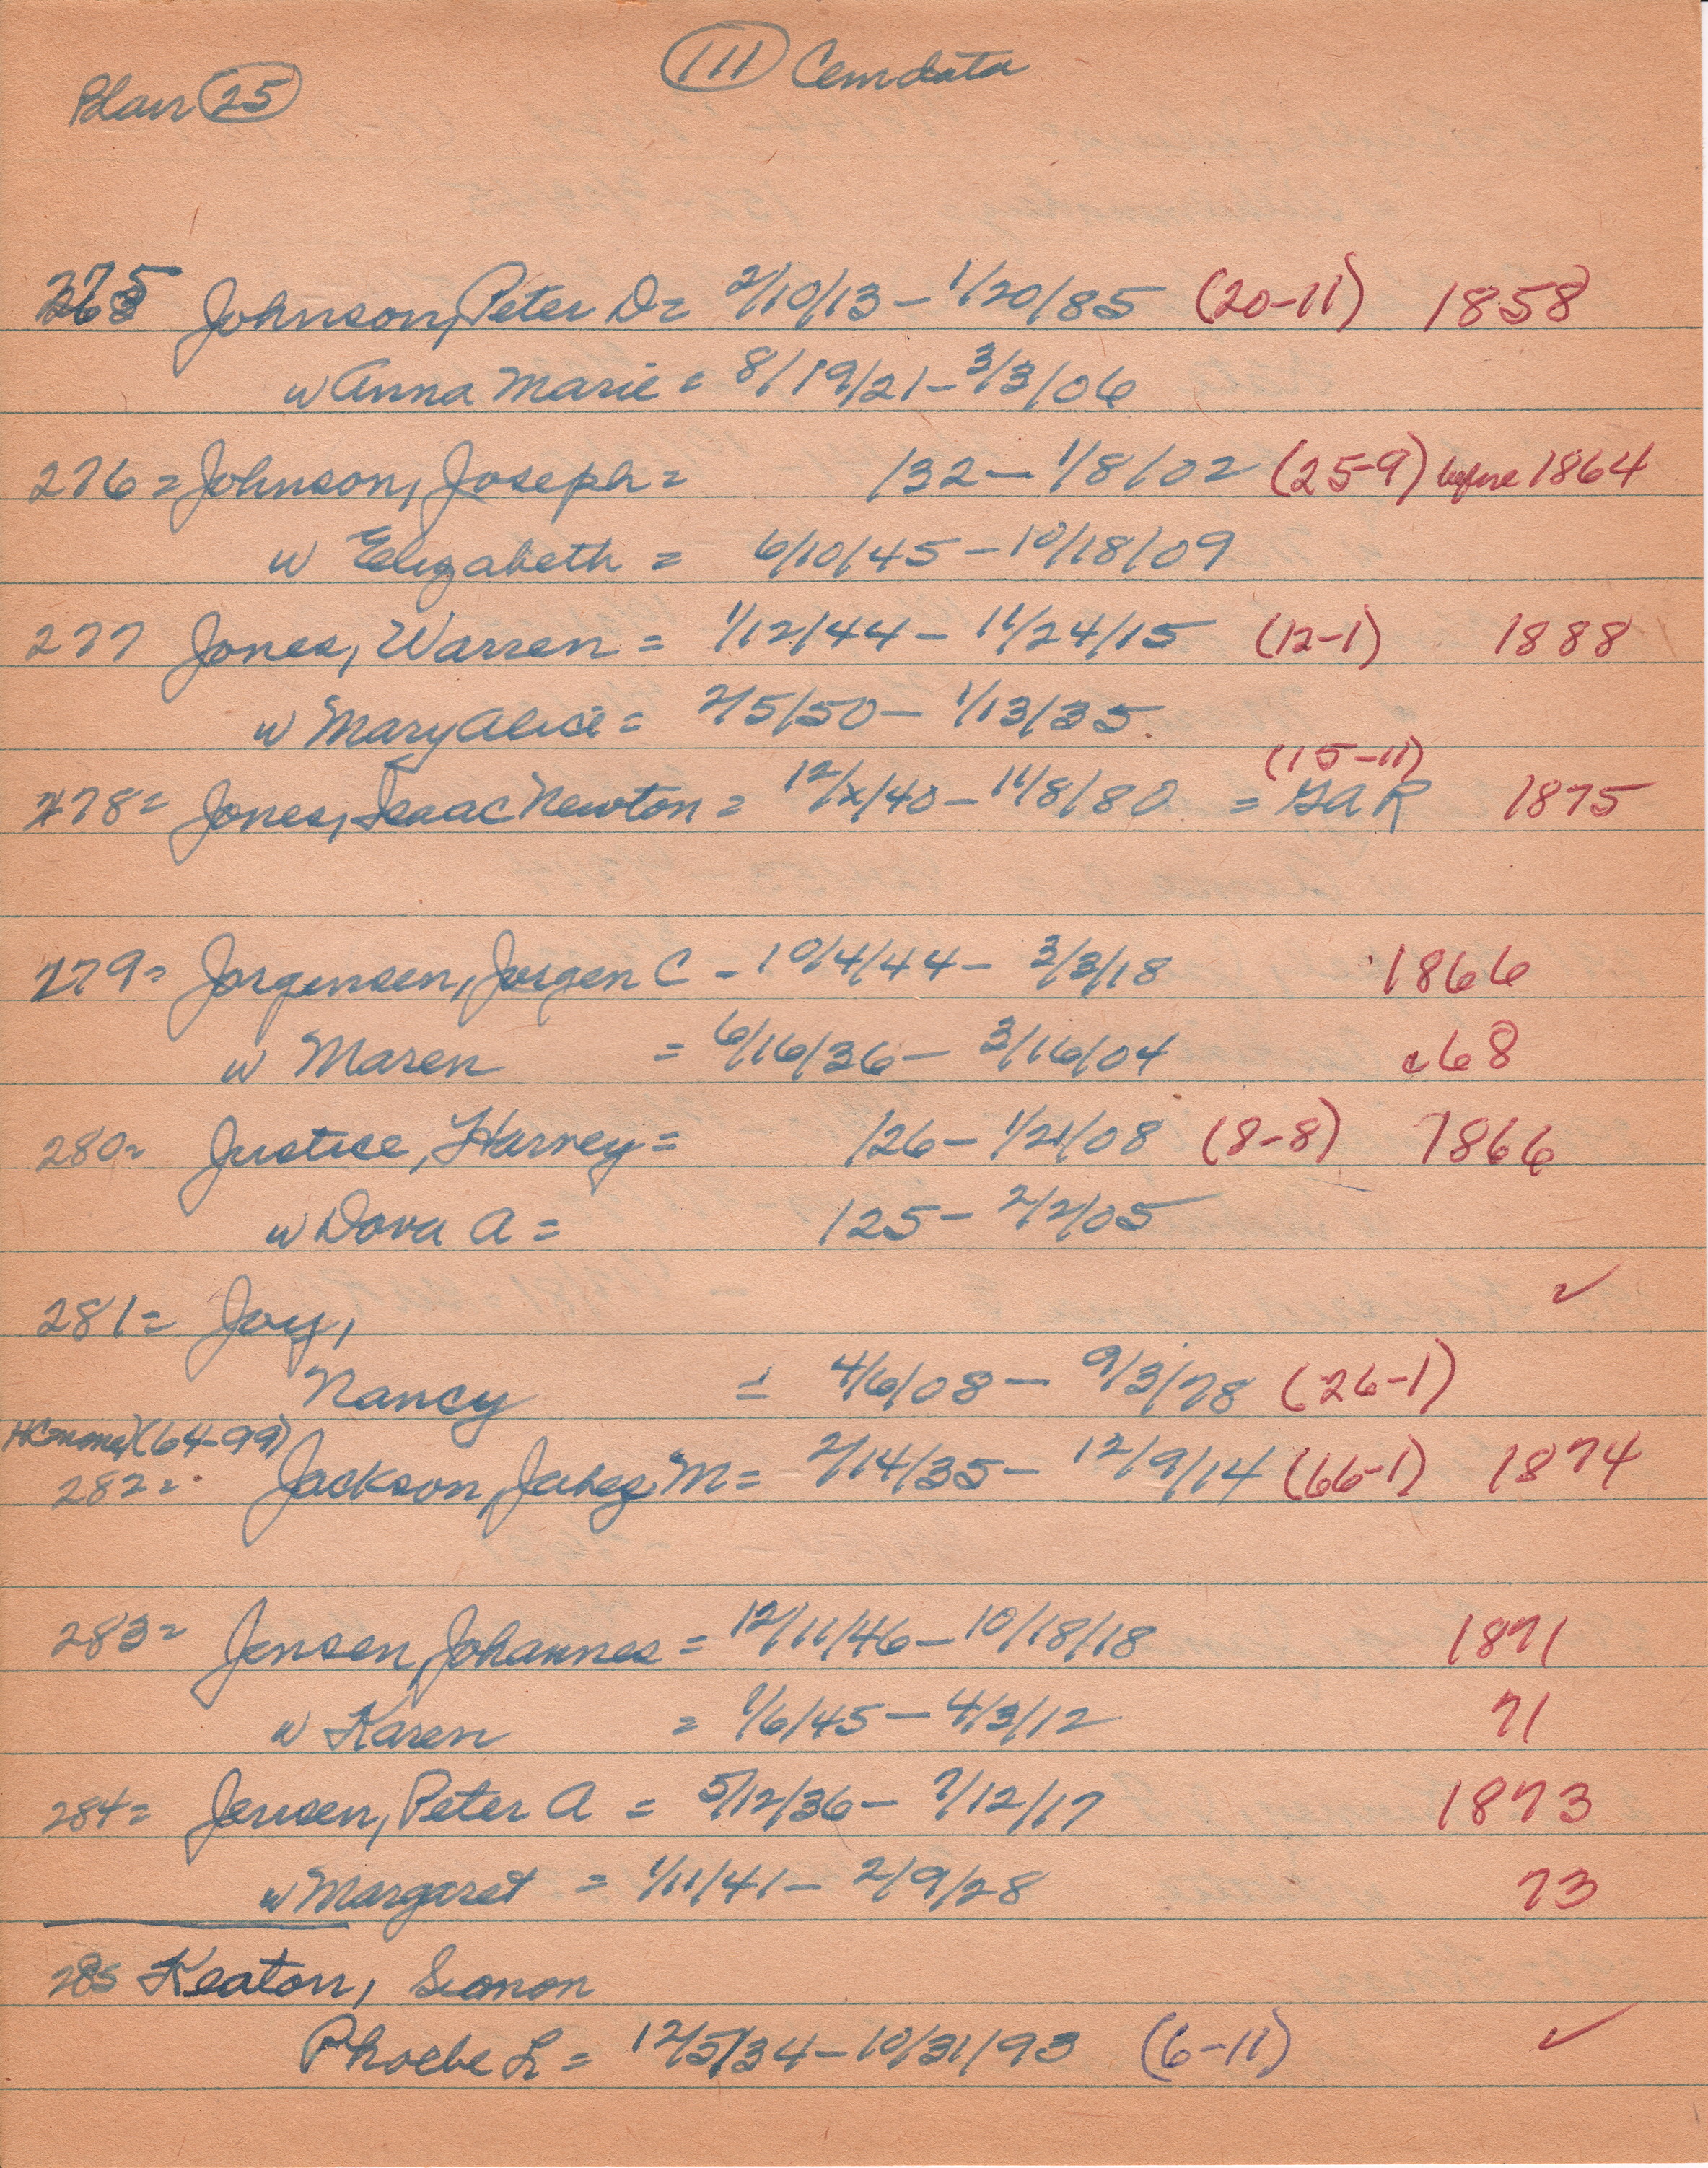 Blair 25
111 Cemdata
275 Johnson, Peter D = 2/10/13 - 1/20/85 (20-11) 1858
w Anna Marie = 8/19/21 - 3/3/06
276 = Johnson, Joseph = /32 - 1/8/02 (25-9) before 1864
w Elizabeth = 6/10/45 - 10/18/09
277 Jones, Warren = 1/12/44 - 11/24/15 (12-1) 1888
w Mary Alice = 2/5/50 - 1/13/35
(15-11)
278 = Jones, Isaac Newton = 12/x/40 - 11/8/80 = GAR 1875
279 = Jorgensen, Jorgen C - 10/4/44 - 3/3/18 1866
w Maren = 6/16/36 - 3/16/04 c68
280 = Justice, Harvey = /26 - 1/21/08 (8-8) 1866
w Dova A = /25 - 2/2/05
281 = Joy, ✓
Nancy = 4/6/08 - 9/3/78 (26-1)
(64-99)
282 = Jackson, Jabez M = 2/14/35 - 12/9/14 (66-1) 1874
283 = Jensen, Johannes = 12/11/46 - 10/18/18 1871
w Karen = 1/6/45 - 4/3/12 71
284 = Jensen, Peter A = 5/12/36 - 7/12/17 1873
w Margaret = 1/11/41 - 2/9/28 73
285 Keaton, Simon
Phoebe L = 12/5/34 - 10/31/93 (6-11) ✓